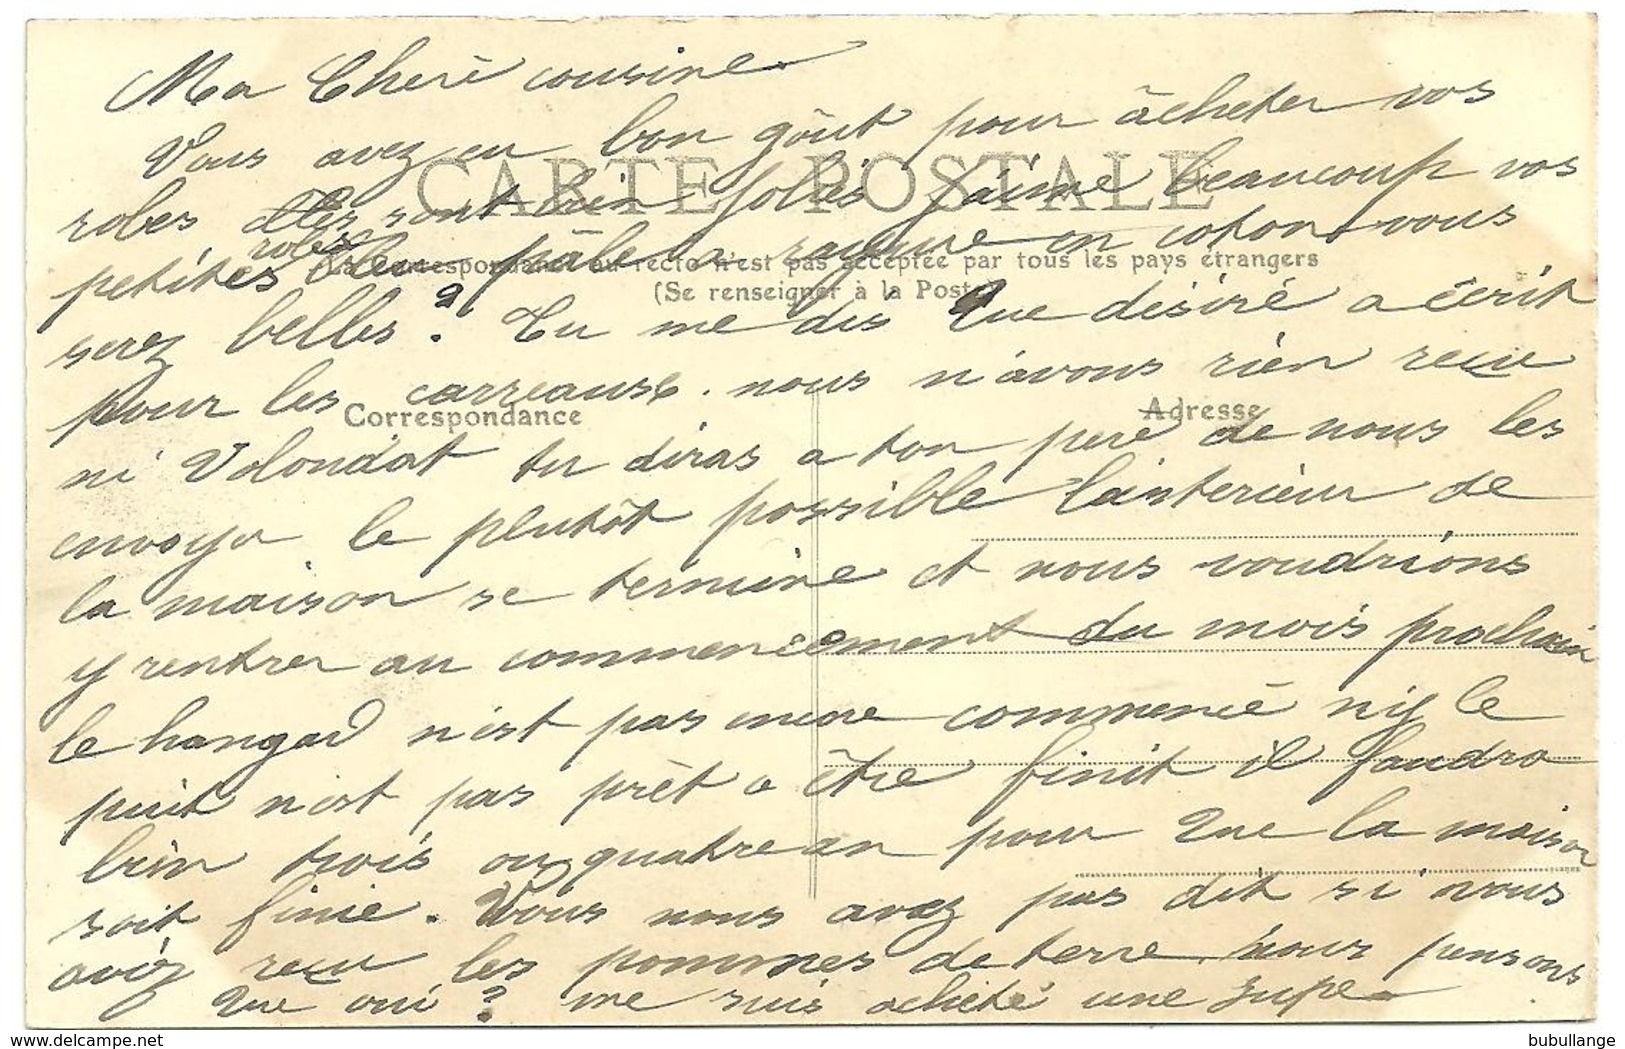 Ma Cherè cousine
Vous avez eu bon goût pour acheter vos
CARTE POSTALE
robes elles sont bien jolies j'aime beaucoup vos
petites robes bleu pâle a rayure en coton vous
La Correspondance au recto n'est pas acceptée par tous les pays étrangers
(Se renseigner à la Poste)
serez belles? Tu me dis que désiré a écrit
pour les carreaux. nous n'avons rien recu
Correspondance
Adresse
ni Volondat tu diras a ton pere de nous les
envoyer le plutôt possible l'ainterieur de
la maison se termine et nous voudrions
y rentrer au commencement du mois prochain
le hangard n'est pas meme commencé niy le
puit n'est pas prêt a être finit il faudra
bien trois ou quatre an pour que la maison
soit finie. Vous nous avez pas dit si vous
aviez recu les pommes de terre nous pensons
que oui? me suis acheté une jupe
bubullange